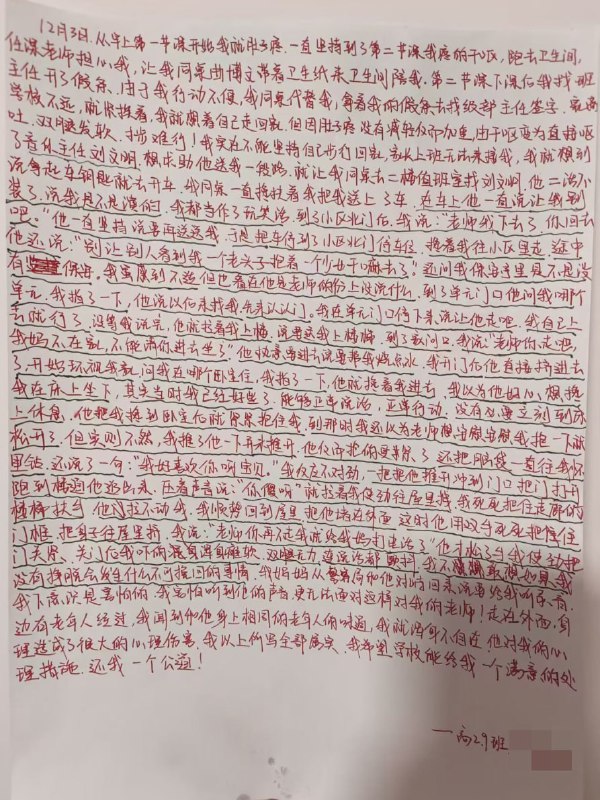 12月3日.从早上第一节课开始我就肚子疼.一直坚持到了第二节课我疼的干呕,跑去卫生间,
任课老师担心我,让我同桌曲博文带着卫生纸来卫生间陪我.第二节课下课后我找班
主任开了假条.由于我行动不便,我同桌代替我,拿着我的假条去找级部主任签字.家离
学校不远,就没接着,我就想着自己走回家,但因肚子疼没有减轻似乎加重,由干呕变为直接呕
吐.双腿发软.寸步难行!我实在不能坚持自己步行回家,家长上班无法来接我,我就想到
了音体主任刘文明.想求助他送我一段路.就让我同桌去二楼值班室找刘文明.他二话不
说拿起车钥匙就去开车.我同桌一直搀扶着我把我送上了车.在车上他一直说让我别
装了,说我是不是演的.我都当作了玩笑话.到了小区北门后.我说:"老师我下去了,你回去
吧."他一直坚持说要再送送我.于是把车停到了小区北门停车位.搀着我往小区里走.途中
他还说:"别让别人看到我一个老头子抱着一个少女干嘛去了?"还问我你害怕是不是没
有      假海.我虽感到不适但也看在他是老师的份上没说什么.到了单元门口他问我哪个
单元.我指了一下,他说以后来找我,先来认认门.我在单元门口停下来,说让他走吧.我自己上
去就行了.没等我说完,他就拉着我上楼.说要送我上楼梯.到了家门口.我说:"老师你走吧.
我妈不在家,不能请你进去坐了"他执意要进去说要帮我烧点水.我开门后他直接挤进去
了.开始环视我家,问我在哪个卧室住,我指了一下,他就搀着我进去.我以为他好心,想搀
我在床上坐下,其实当时我已经好些了.能够正常说话,正常行动,没有必要立刻到床
上休息.他把我搀到卧室后就紧紧抱住我,到那时我还以为老师想安慰安慰我抱一下就
松开了.但实则不然,我推了他一下并未推开.他反而抱的更紧了.还把脑袋一直往我怀
里钻,还说了一句:"我好喜欢你啊宝贝."我反应不对劲,一把把他推开冲到门口把门打开
跑到楼道他追出来.压着声音说:"你傻啊"就拉着我使劲往屋里拽.我死死把住走廊的
楼梯扶手他拉不动我.我快跑回到屋里把他堵在外面.这时他用双手死死把住住
门框,把身子往屋里挤.我说:"老师你再不走我就给我妈打电话了"他才松了手我使劲把
门关紧.关门后我吓的浑身瘫软.双腿无力.连说话都     抖.我不敢想如果我
没有挣脱会发生什么不可挽回的事情.我妈妈从警察局和他对峙回来说要给我听录音.
我下意识是害怕的,我害怕听到他的声音更无法面对这样对我的老师!走在外面,身
边有老年人经过,我闻到和他身上相同的老年人的味道,我就浑身不自在.他对我的心
理造成了很大的心理伤害.我以上所写全部属实.我希望学校能给我一个满意的处
理措施.还我一个公道!
一高2.9班